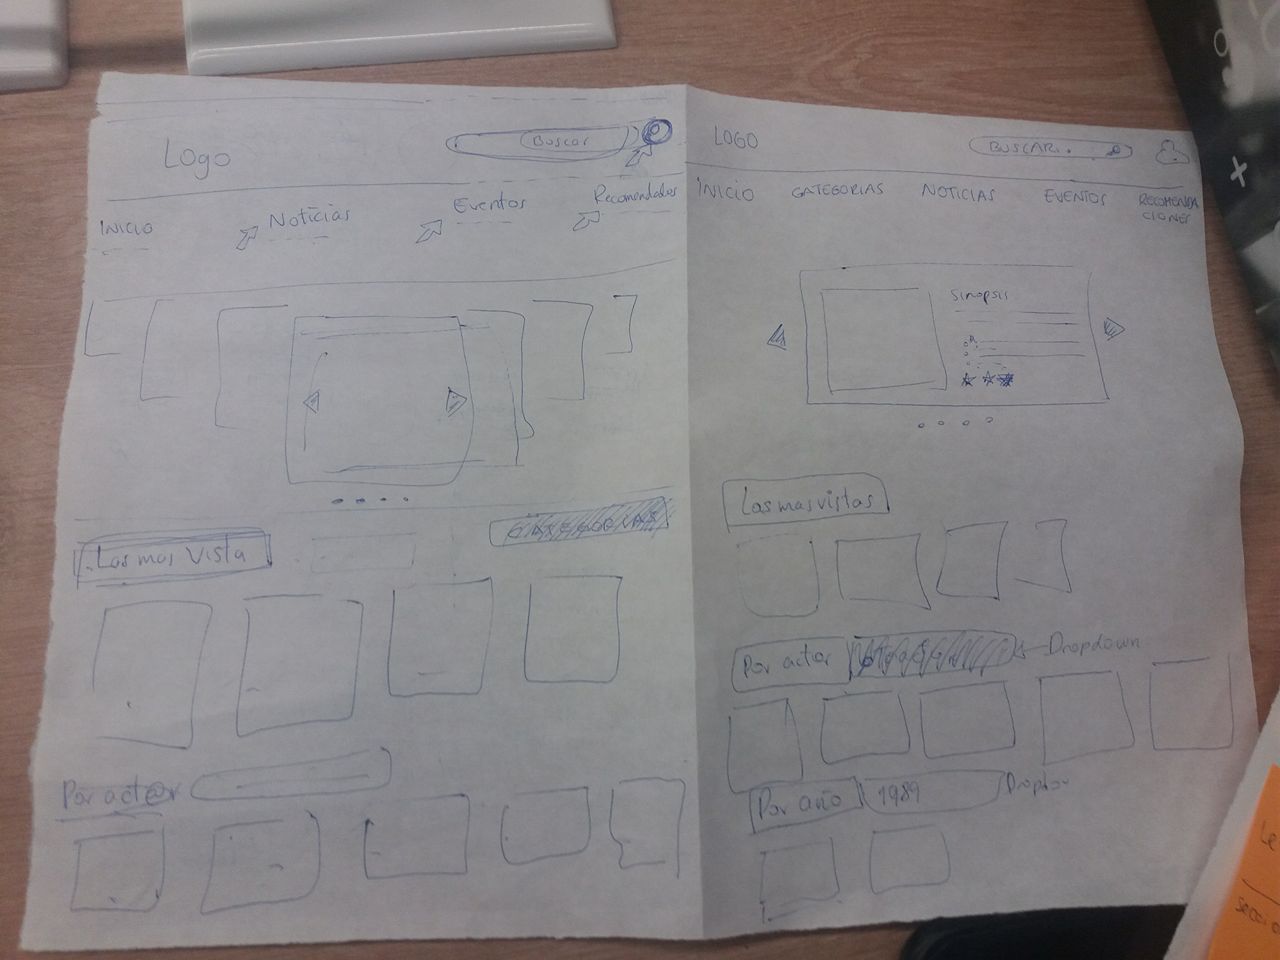 Logo
Buscar
INICIO
Noticias
Eventos
Recomendados
Las mas vista
Por act@r
LOGO
BUSCAR.
INICIO
CATEGORIAS
NOTICIAS
EVENTOS
RECOMENDA
CIONES
Sinopsis
Las mas vistas
Por actor
Dropdown
Por año
1989